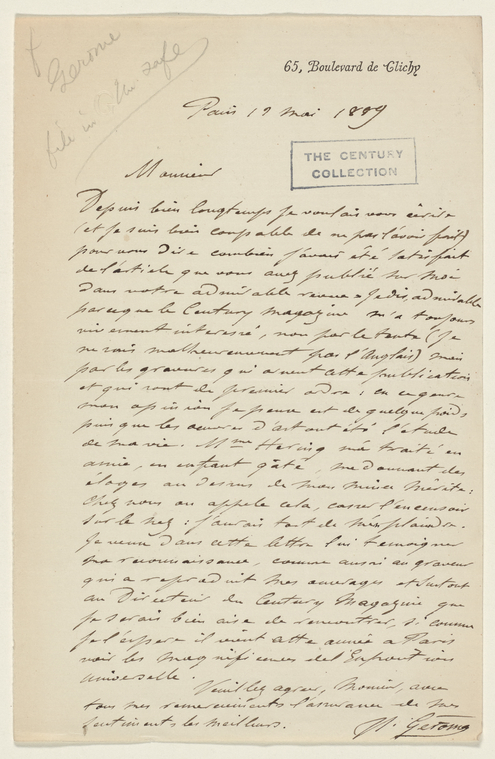 Gerome
file in
65, Boulevard de Clichy
Paris 19 mai 1889
THE CENTURY
COLLECTION
Monsieur
Depuis bien longtemps je voulais vous écrire
(et je suis bien coupable de ne pas l'avoir fait)
pour vous dire combien j'avais été satisfait
de l'article que vous avez publié sur moi
dans votre admirable revue. Je dis, admirable
parceque le Century magazine m'a toujours
vivement interessé, non par le texte (je
ne sais malheureusement pas l'Anglais) mais
par les gravures qui ornent cette publication
et qui sont de premier ordre : en ce genre
mon opinion je pense est de quelque poids
puisque les œuvres d'art ont été l'étude
de ma vie. Mme Hering m'a traité en
amie, en enfant gâté, me donnant des
éloges au dessus de mon mince mérite :
chez nous on appele cela, casser l'encensoir
sur le nez : j'aurais tort de m'en plaindre.
Je viens dans cette lettre lui temoigner
ma reconnaissance, comme aussi au graveur
qui a reproduit mes ouvrages et surtout
au Directeur du Century Magazine que
je serais bien aise de rencontrer, si comme
je l'espère il vient cette année à Paris
voir les magnificences de l'Exposition
universelle.
Veuillez agréer, Monsieur, avec
tous mes remerciements l'assurance de mes
sentiments les meilleurs.
Gerome